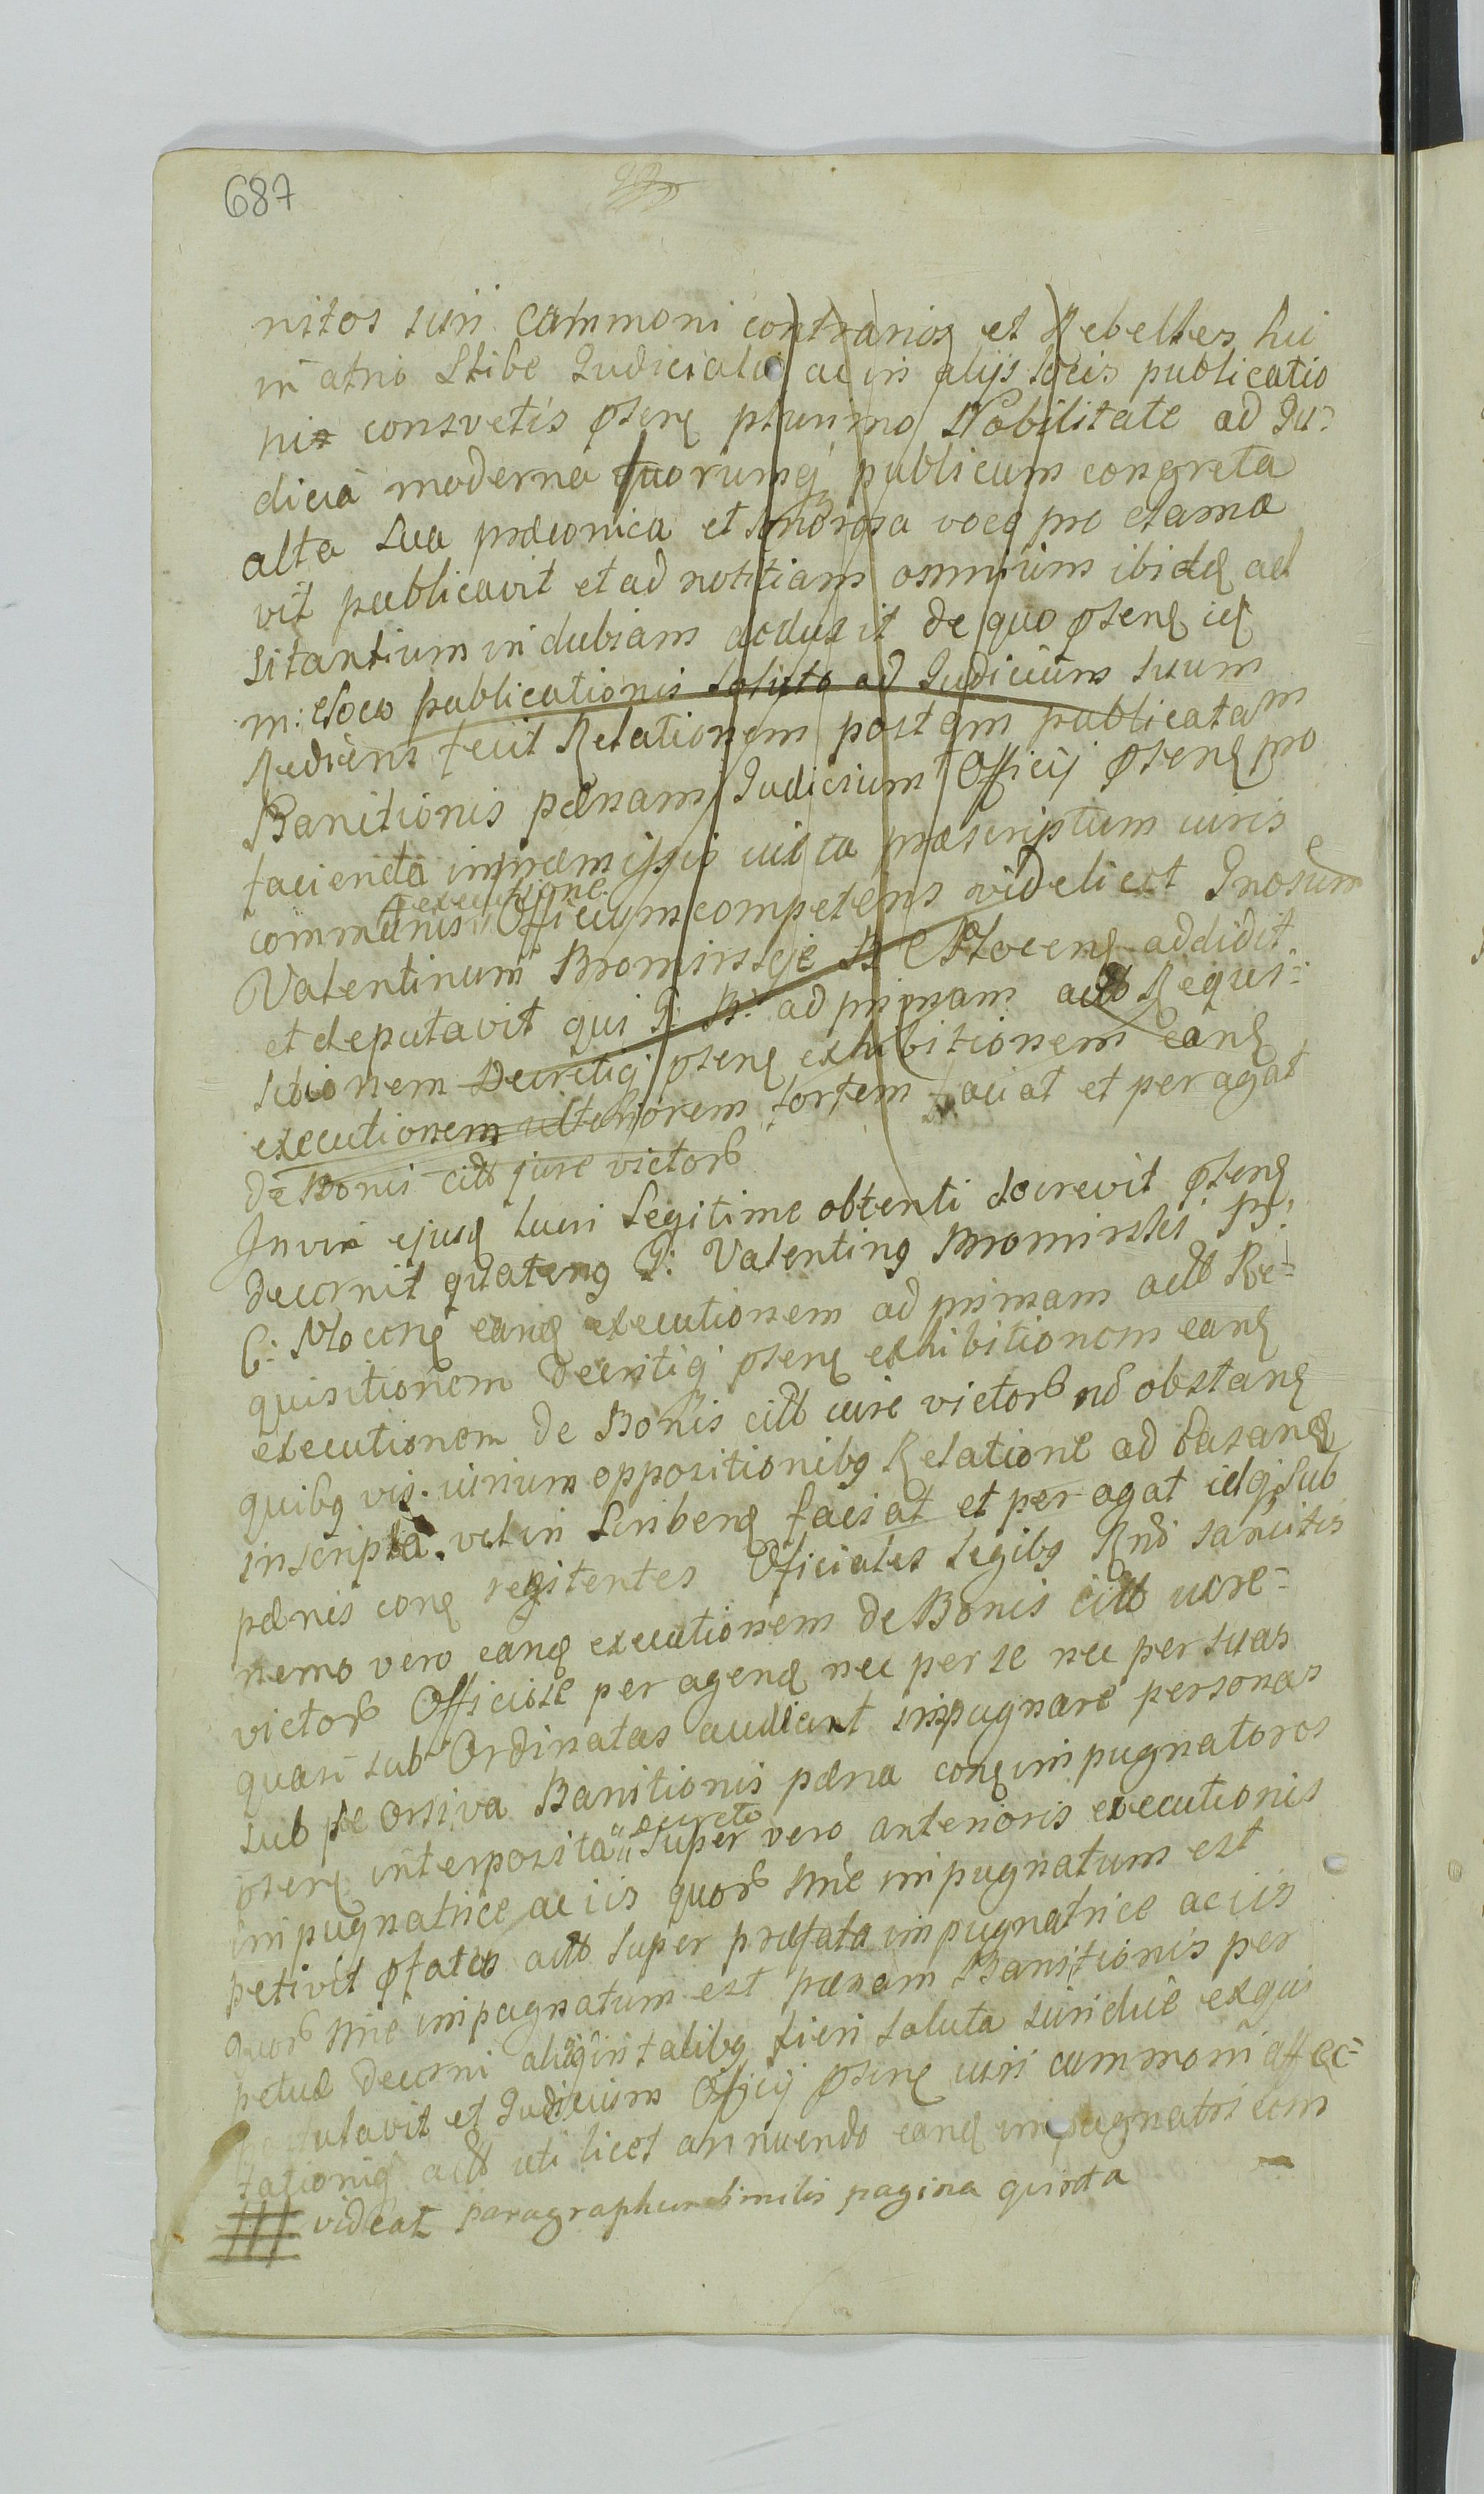 687
nitos suri cammoni contrarios et Rebelles hic
in atrio Stibe Judicialis ac in alijs locis publicatio
nis consvetis pseñ plurimo Nobilitate ad Ju=
dicia moderna quorumqȝ publicum congreta
alta sua præconica et sonorosa voce pro clama
vit publicavit et ad notitiam omnium ibideɱ ad
sitantium in dubiam deduxit de quo pseñ id
m: eloco publicationis solito ad Judicium suum
Rediens fecit Relationem post qm publicatam
Banitionis pænam Judicium Officij pseñ pro
facienda in præmissis iuxta præscriptum iuris
executione
communis Officium competens videlicet Gnosum
Valentinum Bromirskje B C Plocenɱ addidit
et deputavit qui G: B: ad primam actt Requi=
sitionem Decretiqȝ pseñ exhibitionem eanɖ
executionem ulteriorem fortem faciat et peragat
de Bonis citt jure victoꝝ
In vim ejusɖ lucri Legitime obtenti docrevit pseñ
decernit quateng G: Valenting Bromirski B:
C: Plocenɖ eanɖ executionem ad primam actt Re=
quisitionem Decretiqȝ pseñ exhibitionem eanɖ
executionem de Bonis citt iure victoꝝ nõ obstanɖ
quibg vis iurium oppositionibg Relatione ad Casanɖ
inscripta vel in scribenɖ faciat et per agat idqȝ sub
pænis conɖ renitentes Oficiales Legibg Rnði sancitis
nemo vero eanɖ executionem de Bonis citt iure=
victoꝝ Officiose per agenɖ nec per se nec per suas
quasi sub Ordinatas audeant impugnare personas
sub pe orsiva Banitionis pæna conɖ impugnatores
decreto
pseñ interposita super vero anterioris executionis
impugnatrice ac iis quoꝝ nñe impugnatum est
petivit pfatos actt super præfata impugnatrice ac iis
quoꝝ nñe impugnatum est pænam Banitionis per
petuæ decerni aliaqȝ in talibg fieri soluta juridice exqui
postulavit et Judicium Officij pseñ iuri cummoni affec=
tationiqȝ actt uti licet annuendo eanɖ impugnatricem
videat paragraphum similis pagina quinta